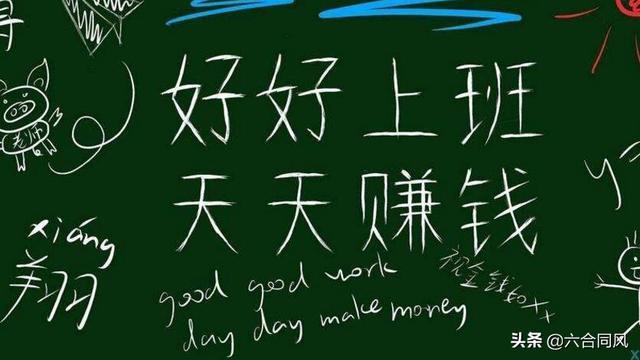 好好上班
老师
天天赚钱
xiáng
翔
good good work
day day make money
头条 @六合同风